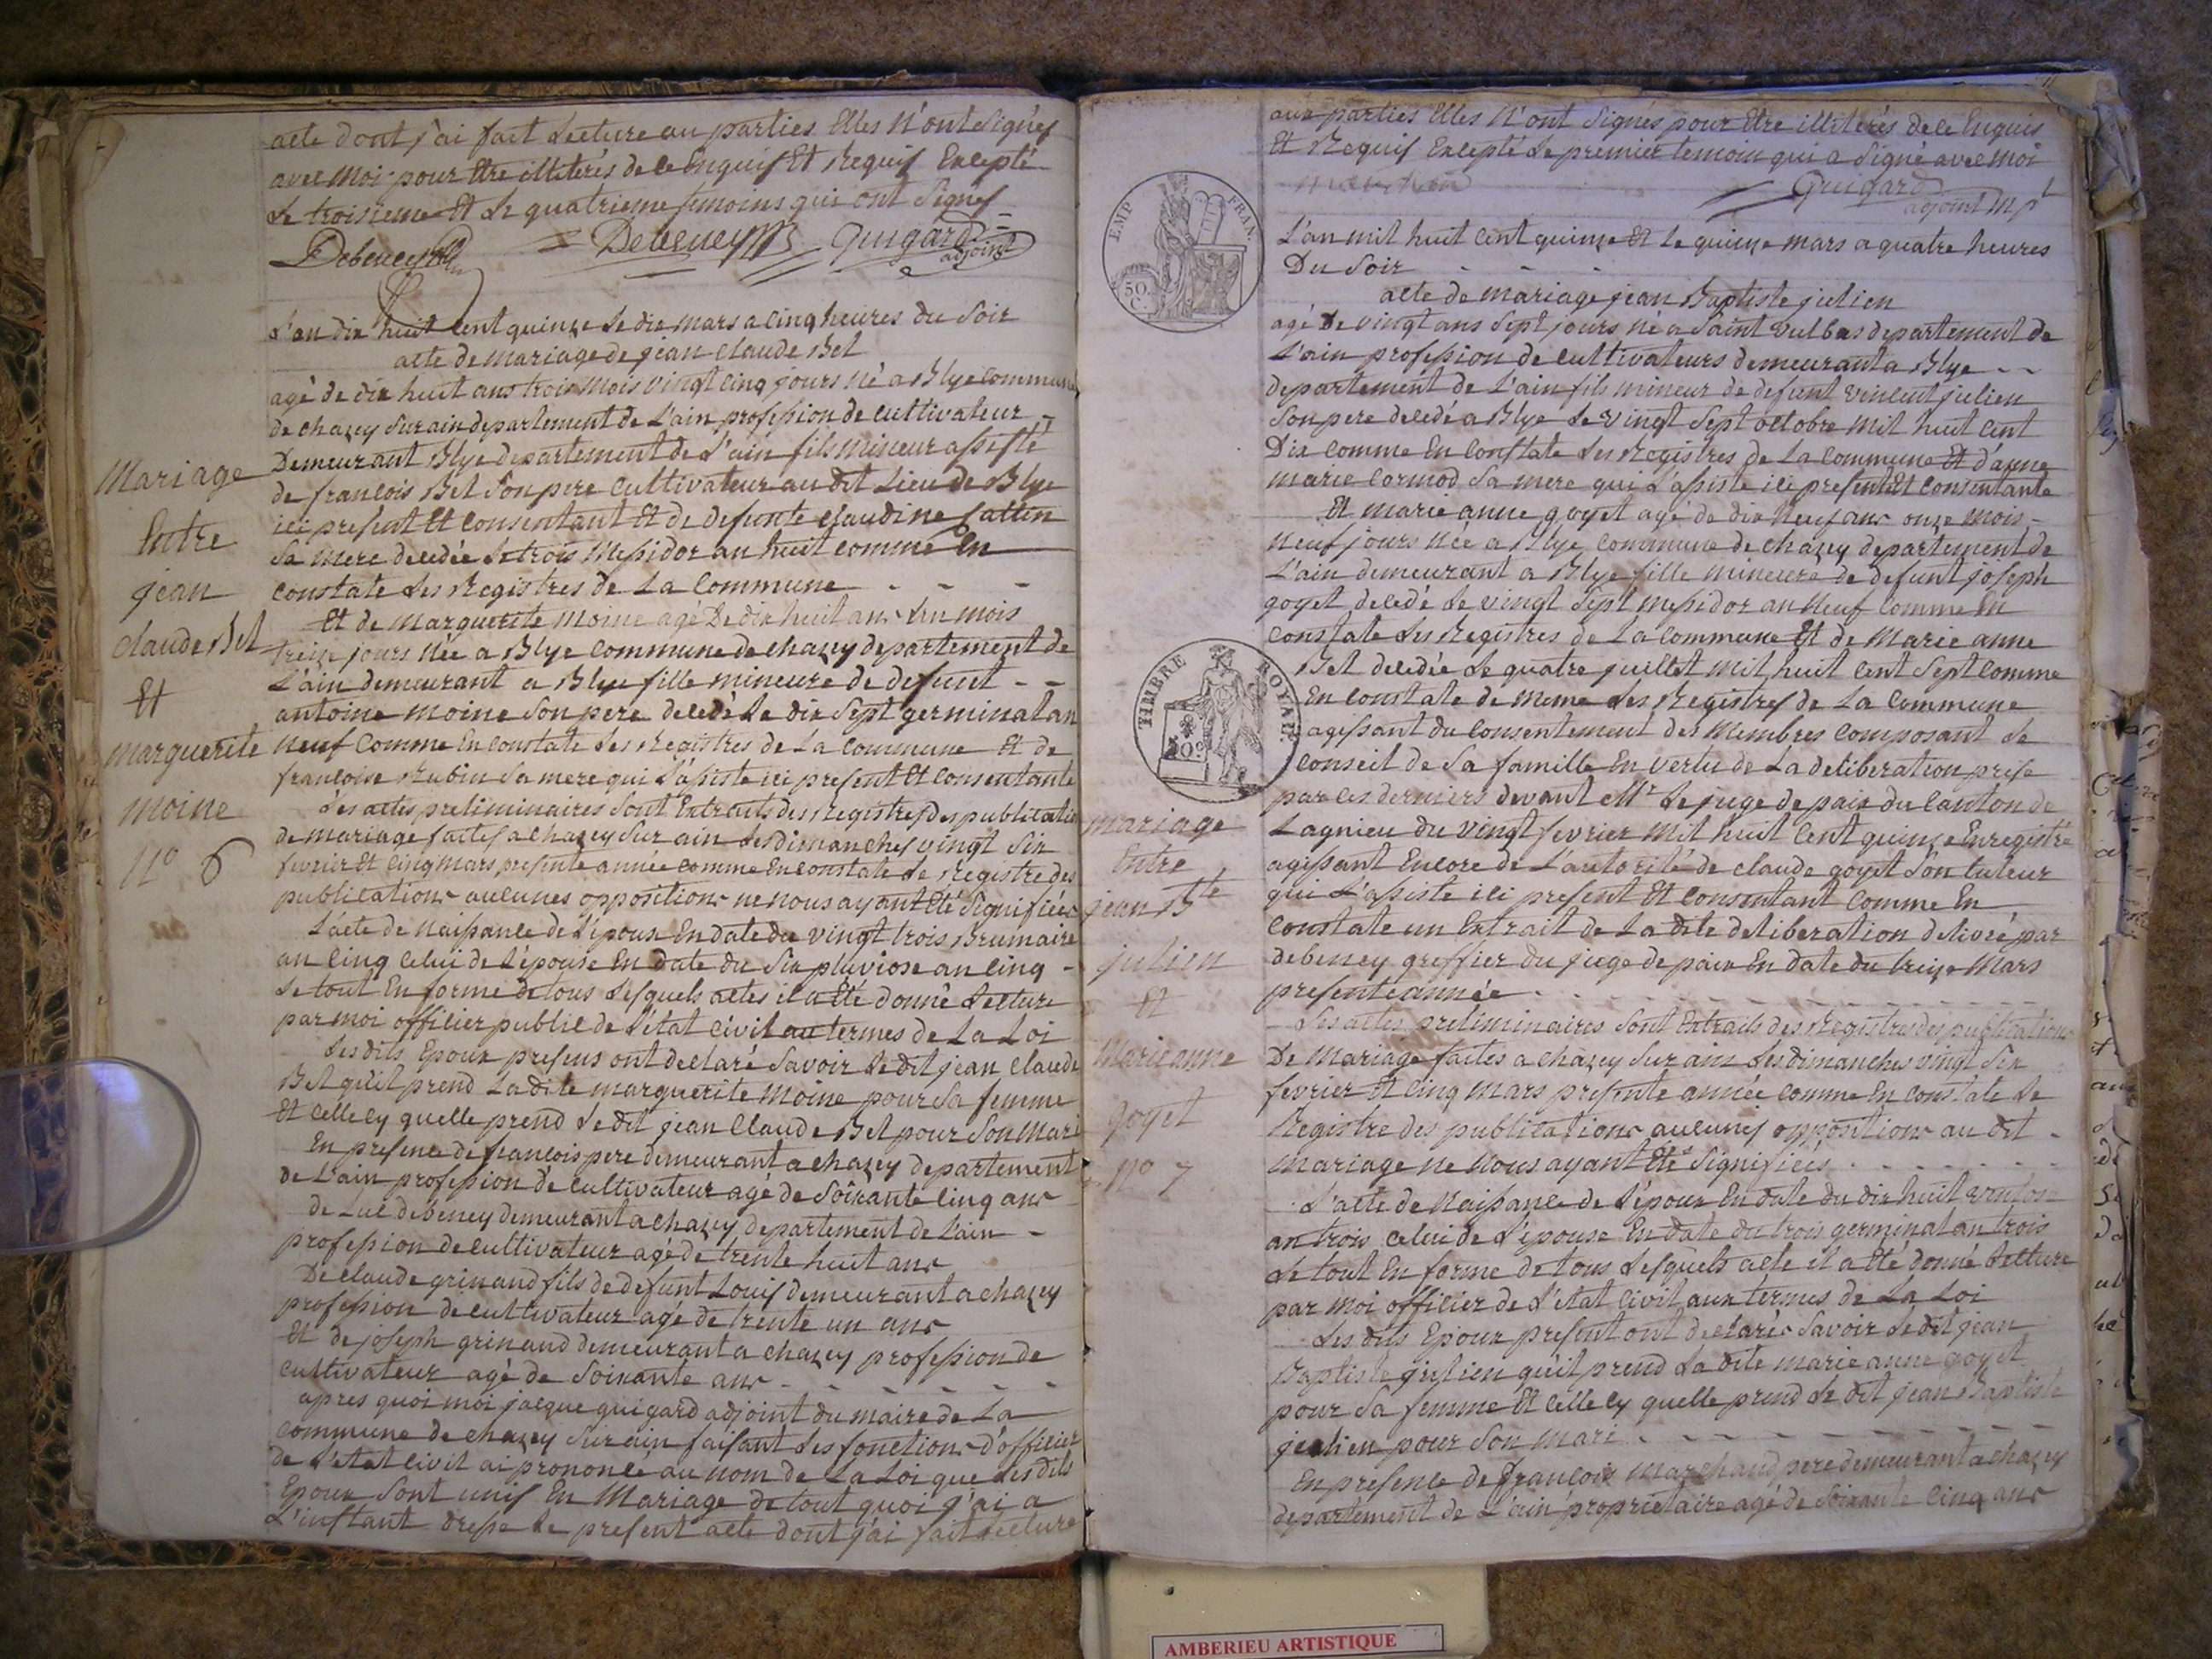 acte dont j'ai fait Lecture au parties Elles N'ont Signés
avec Moi pour Etre illiterés de ce Enquis Et Requis Excepté
Le troisieme Et Le quatrieme temoins qui ont Signés
Guigard
adjoint
L'an dix huit Cent quinze Le dix mars a Cinq heures du Soir
acte de mariage de jean Claude Bel
agé de dix huit ans trois Mois Vingt Cinq jours Né a Blye Commune
de chazey Sur ain departement de L'ain profession de Cultivateur
Demeurant Blye departement de L'ain fils Mineur assisté
de francois Bel Son pere Cultivateur au dit Lieu de Blye
ici present Et Consentant Et de defunte Claudine
Sa Mere decedée Le trois Messidor an huit Comme En
Constate Les Registres de La Commune
Et de Marguerite Moine agé De dix huit ans un Mois
treize jours Née a Blye Commune de chazey departement de
L'ain demeurant a Blye fille mineure de defunt
antoine Moine Son pere decedé Le dix Sept germinal an
Neuf Comme En Constate Les Registres de La Commune Et de
francoise Rubin Sa mere qui L'assiste ici present Et Consentante
Les actes preliminaires Sont Extraits des Registres des publication
de mariage faites a chazey Sur ain Les dimanches vingt Six
fevrier Et Cinq Mars presente année Comme En Constate Le Registre des
publications aucunes oppositions ne nous ayant Eté Signifiées
L'acte de Naissance de L'époux En date du vingt trois Brumaire
an Cinq Celui de L'épouse En date du Six pluviose an Cinq
Le tout En forme de tous Lesquels actes il a Eté donné Lecture
par moi officier public de L'état Civil au termes de La Loi
Les dits Epoux presens ont declaré Savoir Le dit jean Claude
Bel qu'il prend La dite marguerite Moine pour Sa femme
Et Celle Cy quelle prend Le dit jean Claude Bel pour Son Mari
En presence de francois pere demeurant a chazey departement
de L'ain profession de Cultivateur agé de Soixante Cinq ans
de Luc debeney demeurant a chazey departement de L'ain
profession de Cultivateur agé de trente huit ans
De Claude grinand fils de defunt Louis demeurant a chazey
profession de Cultivateur agé de trente un ans
Et de joseph grinand demeurant a chazey profession de
Cultivateur agé de Soixante ans
apres quoi moi jacque guigard adjoint du maire de La
Commune de chazey Sur ain faisant Les fonctions d'officier
de L'etat Civil ai prononcé au nom de La Loi que Les dits
Epoux Sont unis En Mariage de tout quoi j'ai a
L'instant dresse Le present acte dont j'ai fait Lecture
Mariage
Entre
jean
Claude Bel
Et
marguerite
moine
N° 6
aux parties Elles N'ont Signés pour Etre illiterés de ce Enquis
Et Requis Excepté Le premier temoin qui a Signé avec Moi
Guigard
adjoint
EMP FRAN.
50.
C.
L'an mil huit Cent quinze Et Le quinze mars a quatre heures
Du Soir
acte de mariage jean Baptiste julien
agé De vingt ans Sept jours Né a Saint Vulbas departement de
L'ain profession de Cultivateurs demeurant a Blye
departement de L'ain fils mineur de defunt Vincent julien
Son pere decedé a Blye Le Vingt Sept octobre Mil huit Cent
Dix Comme En Constate Les Registres de La Commune Et d'anne
marie Cormod Sa mere qui L'assiste ici present Et Consentante
Et marie anne goyet agé de dix Neuf ans onze Mois
Neuf jours Née a Blye Commune de chazey departement de
L'ain demeurant a Blye fille mineure de defunt joseph
goyet decedé Le vingt Sept Messidor an Neuf Comme En
Constate Les Registres de La Commune Et de Marie anne
Bel decedée Le quatre juillet Mil huit Cent Sept Comme
En Constate de Meme Les Registres de La Commune
agissant du Consentement des Membres Composant Le
Conseil de Sa famille En Vertu de La deliberation prise
par Ces derniers devant Mr Le juge de paix du Canton de
Lagnieu du Vingt fevrier Mil huit Cent quinze Enregistré
agissant Encore de L'autorité de Claude goyet Son tuteur
qui L'assiste ici present Et Consentant Comme En
Constate un Extrait de La dite deliberation delivré par
debeney greffier du juge de paix En date du treize Mars
presente année
Les actes preliminaires Sont Extraits des Registres des publications
De Mariage faites a chazey Sur ain Les dimanches vingt Six
fevrier Et Cinq Mars presente année Comme En Constate Le
Registre des publications aucunes oppositions au dit
Mariage Ne Nous ayant Eté Signifiées
L'acte de Naissance de L'époux En date du dix huit Ventose
an trois Celui de L'épouse En date du trois germinal an trois
Le tout En forme de tous Lesquels acte il a Eté donné Lecture
par moi officier de L'etat Civil aux termes de La Loi
Les dits Epoux present ont declarés Savoir Le dit jean
Baptiste julien qu'il prend La dite marie anne goyet
pour Sa femme Et Celle Cy quelle prend Le dit jean Baptiste
julien pour Son Mari
En presence de francois Marchand pere demeurant a chazey
departement de L'ain proprietaire agé de Soixante Cinq ans
TIMBRE ROYAL
50c
mariage
Entre
jean Bte
julien
Et
Marie anne
goyet
N° 7
AMBERIEU ARTISTIQUE